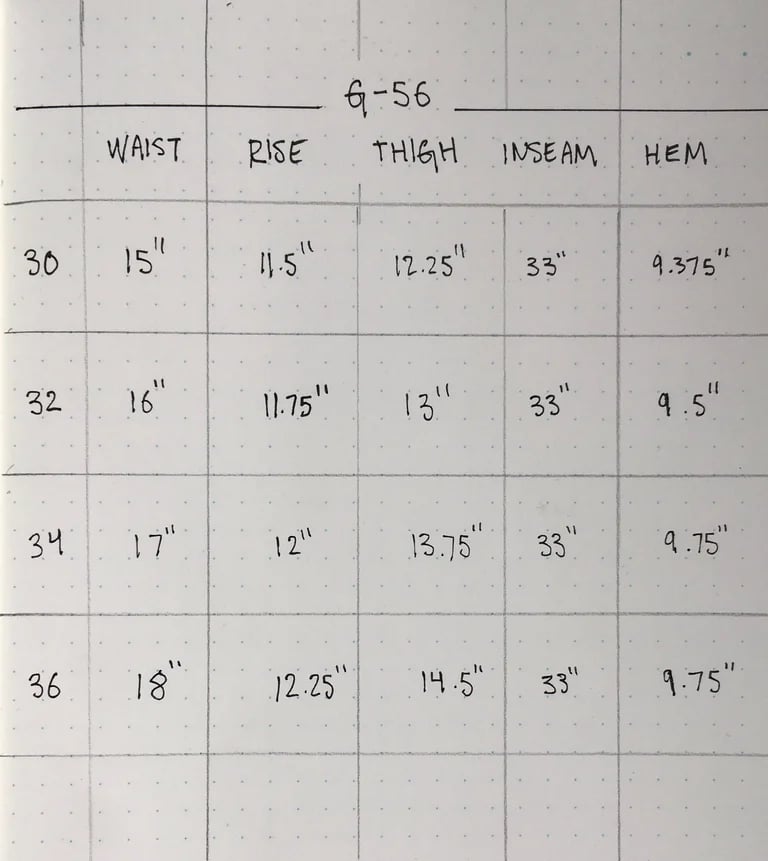 G-56
WAIST RISE THIGH INSEAM HEM
30 15" 11.5" 12.25" 33" 9.375"
32 16" 11.75" 13" 33" 9.5"
34 17" 12" 13.75" 33" 9.75"
36 18" 12.25" 14.5" 33" 9.75"